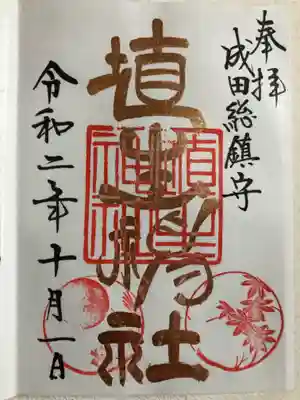 奉拝
成田総鎮守
埴生神社
埴生神社
令和二年十月一日